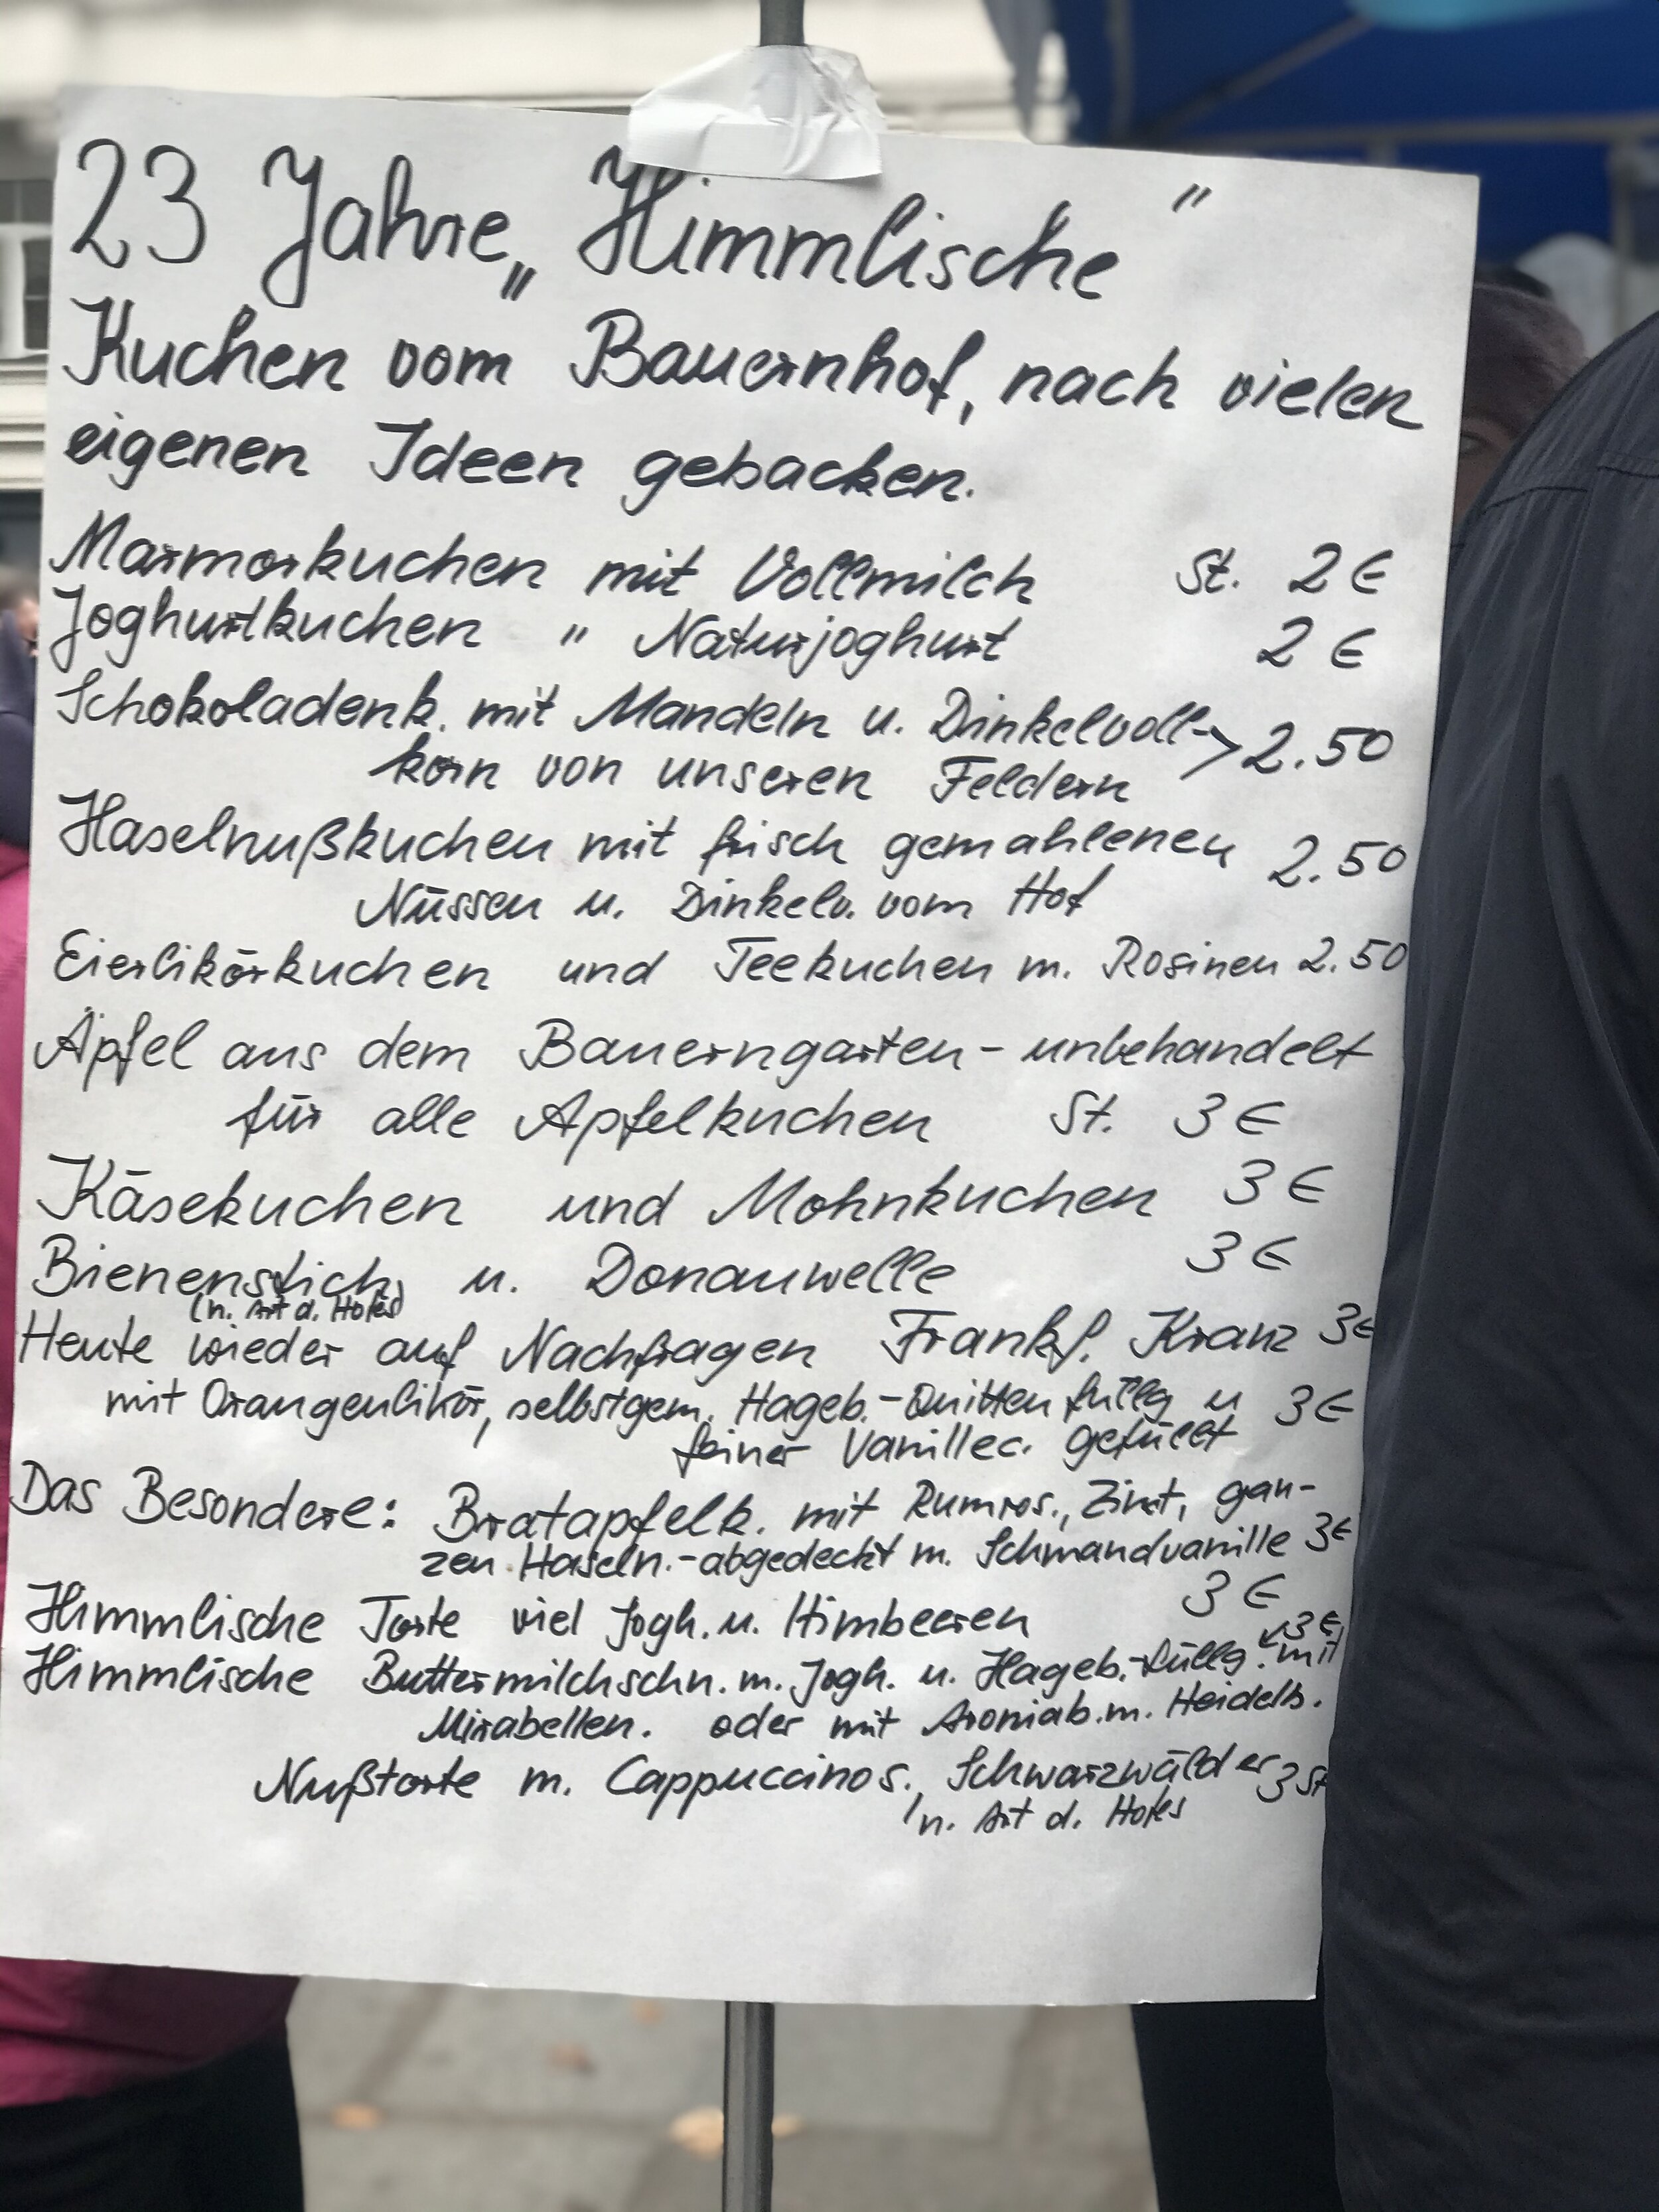 23 Jahre „Himmlische"
Kuchen vom Bauernhof, nach vielen
eigenen Ideen gebacken.
Marmorkuchen mit Vollmilch St. 2 €
Joghurtkuchen " Naturjoghurt 2 €
Schokoladenk. mit Mandeln u. Dinkelvoll- > 2.50
korn von unseren Feldern
Haselnußkuchen mit frisch gemahlenen 2.50
Nüssen u. Dinkelv. vom Hof
Eierlikörkuchen und Teekuchen m. Rosinen 2.50
Äpfel aus dem Bauerngarten - unbehandelt
für alle Apfelkuchen St. 3 €
Käsekuchen und Mohnkuchen 3 €
Bienenstich u. Donauwelle 3 €
(n. Art d. Hofes)
Heute wieder auf Nachfragen Frankf. Kranz 3€
mit Orangenlikör, selbstgem. Hageb.-Quittenfüllg u 3 €
feiner Vanillec. gefüllt
Das Besondere: Bratapfelk. mit Rumros., Zimt, gan-
zen Haseln.-abgedeckt m. Schmandvanille 3€
Himmlische Torte viel Jogh. u. Himbeeren 3 €
3 €
Himmlische Buttermilchschn. m. Jogh. u. Hageb.-füllg. mit
Mirabellen. oder mit Aroniab. m. Heidelb.
Nußtorte m. Cappuccinos., Schwarzwälder 3 St
n. Art d. Hofes